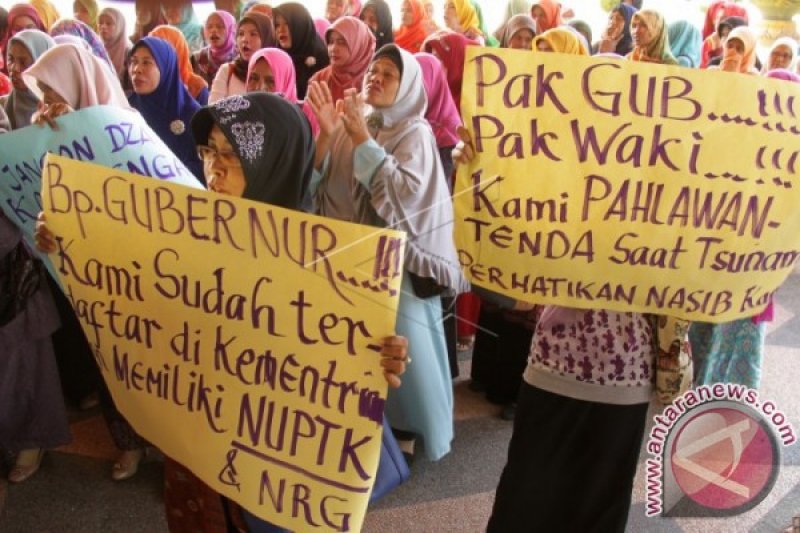 JANGAN DZA
Bp. GUBERNUR....!!!
Kami Sudah ter-
daftar di Kementri
MEMILIKI NUPTK
& NRG
Pak GUB....!!!
Pak Waki...!!!
Kami PAHLAWAN-
TENDA Saat Tsunam
PERHATIKAN NASIB Ka
www.antaranews.com